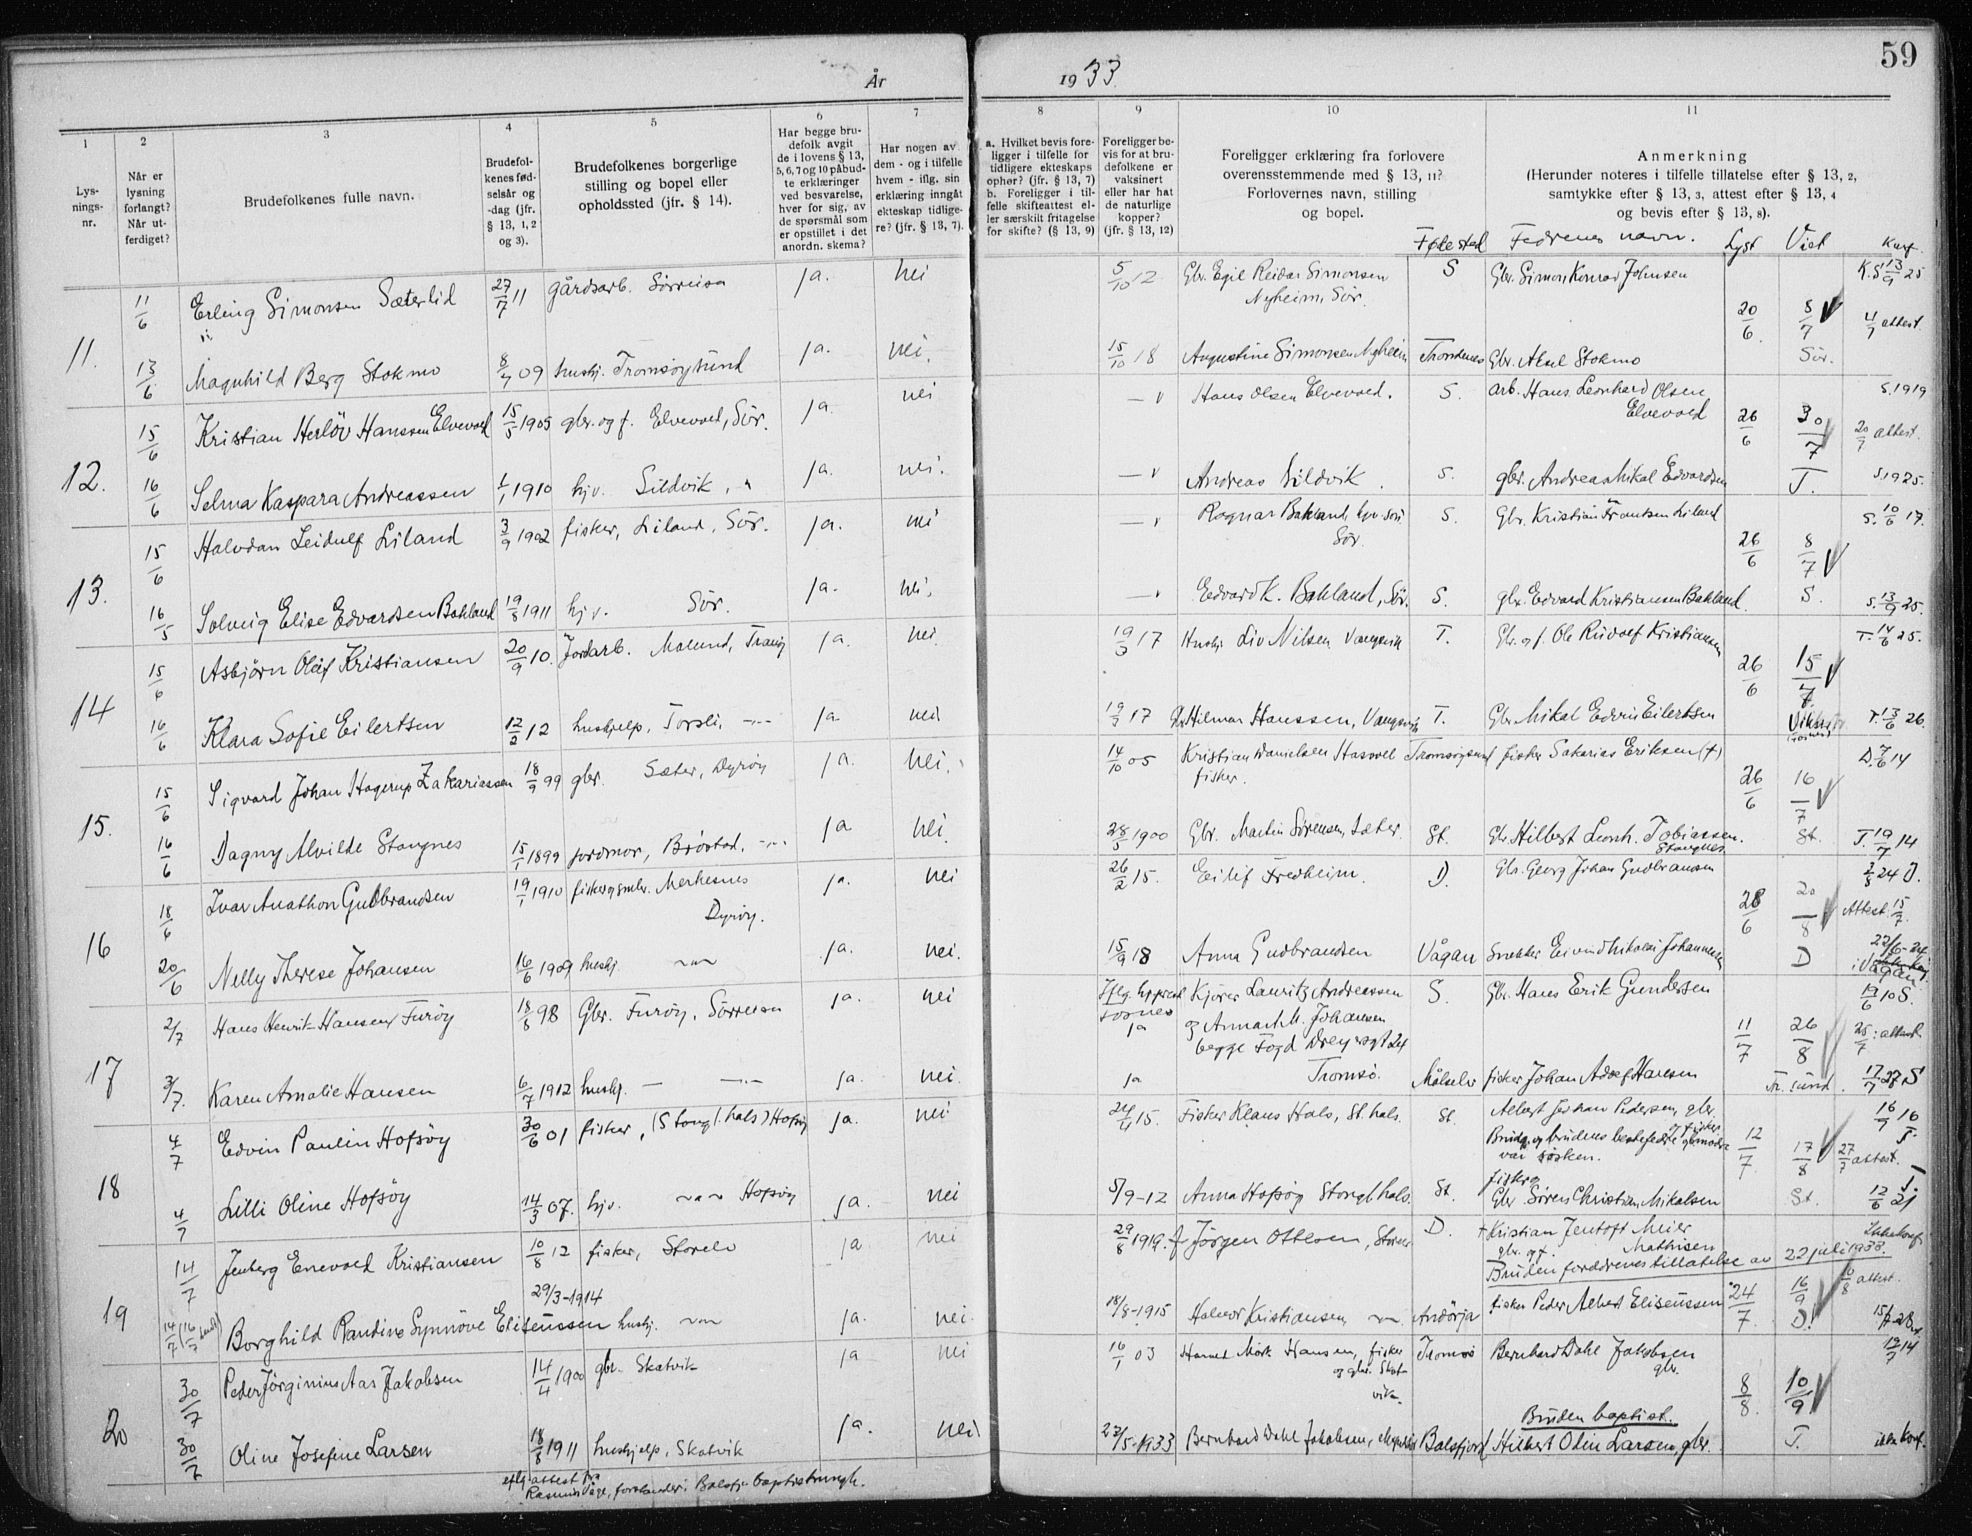 59
År 1933.
1
Lysningsnr.
2
Når er lysning forlangt? Når utferdiget?
3
Brudefolkenes fulle navn.
4
Brudefolkenes fødselsår og -dag (jfr. § 13, 1, 2 og 3).
5
Brudefolkenes borgerlige stilling og bopel eller opholdssted (jfr. § 14).
6
Har begge brudefolk avgit de i lovens § 13, 5, 6, 7 og 10 påbudte erklæringer ved besvarelse, hver for sig, av de spørsmål som er opstillet i det anordn. skema?
7
Har nogen av dem - og i tilfelle hvem - iflg. sin erklæring inngått ekteskap tidligere? (jfr. § 13, 7).
8
a. Hvilket bevis foreligger i tilfelle for tidligere ekteskaps ophør? (jfr. § 13, 7)
b. Foreligger i tilfelle skifteattest eller særskilt fritagelse for skifte? (§ 13, 9)
9
Foreligger bevis for at brudefolkene er vaksinert eller har hat de naturlige kopper? (jfr. § 13, 12)
10
Foreligger erklæring fra forlovere overensstemmende med § 13, 11? Forlovernes navn, stilling og bopel.
11
Anmerkning
(Herunder noteres i tilfelle tillatelse efter § 13, 2, samtykke efter § 13, 3, attest efter § 13, 4 og bevis efter § 13, 8).
Fødested Fedrenes navn. Lyst Viet Konf
11. 11/6 Erling Simonsen Sæterlid 27/7 11 gårdsarb. Sørreisa ja. nei 5/10 12 Gbr. Egil Reidar Simonsen S Gbr. Simon Konrad Johnsen K.S 13/9 25
Nyheim, Sør. 20/6 8/7 4/7 attest.
13/6 Magnhild Berg Stokmo 8/7 09 hushj. Tromsøysund ja. nei. 15/10 18 Augustine Simonsen Nyheim Trondenes Gbr. Aksel Stokmo Sør.
12. 15/6 Kristian Herløv Hanssen Elvevold 15/5 1905 gbr. og f. Elvevold, Sør. ja. nei — v Hans Olsen Elvevold. S. arb. Hans Leonhard Olsen S. 1919
Elvevold 26/6 30/7 20/7 attest.
16/6 Selma Kaspara Andreassen 1/1 1910 hjv. Sildvik, " ja. nei. — v Andreas Sildvik. S. gbr. Andreas Mikal Edvardsen T. S. 1925.
13. 15/6 Halvdan Leidulf Liland 3/9 1902 fisker, Liland, Sør. ja. nei — v Ragnar Bakland, S. Gbr. Kristian Frantsen Liland S. 10/6 17.
Sør. 26/6 8/7
16/5 Solveig Elise Edvardsen Bakland 19/8 1911 hjv. Sør. ja. nei. — v Edvard K. Bakland, Sør. S. gbr. Edvard Kristiansen Bakland. S. S. 13/9 25.
14 15/6 Asbjørn Olaf Kristiansen 20/9 10. Jordarb. Tranøy ja. nei 19/3 17 Hushj. Liv Nilsen Vangsvik T. Gbr. og f. Ole Rudolf Kristiansen T. 14/6 25.
26/6 15/7
16/6 Klara Sofie Eilertsen 12/2 12 hushjelp, Torsli, —"— ja. nei 19/3 17 Hilmar Hanssen, Vangsvik T. Gbr. Mikal Edvin Eilertsen T. 13/6 26.
15. 15/6 Sigvard Johan Hagerup Zakariassen 18/9 99 gbr. Sæter, Dyrøy ja. nei. 14/10 05 Kristian Danielsen Tromsøysund fisker Sakarias Eriksen (†) D. 7/6 14
fisker. 26/6 16/7
16/6 Dagny Alvilde Stangnes 15/1 1899 jordmor, Brøstad, —"— ja nei. 28/5 1900 Gbr. Martin Sørensen, Sæter. St. Gbr. Hilbert Leonh. Tobiassen. St. T. 19/7 14
Stangnes
16 18/6 Ivar Anathon Gudbrandsen 19/1 1910 fisker og gmbr. Merkesnes ja. nei 26/2 15. Eilif Fredheim. D. Gbr. Georg Johan Gudbrandsen 24 D.
Dyrøy. 28/6 20/8 Attest 15/7.
20/6 Nelly Therese Johansen 16/6 1909 hushj. —"— ja. nei. 15/9 18 Anna Gudbrandsen Vågan Snekker Eivind Nikolai Johannesen D i Vågan
17 2/7 Hans Henrik Hansen Furøy 18/8 98 Gbr. Furøy, Sørreisa ja. nei ja Kjører Lauritz Andreassen S. Gbr. Hans Erik Gundersen 10 S.
og Anna M. Johansen
begge Fogd Dreyersgt 24 11/7 26/8 25/7 attest
Tromsø.
3/7. Karen Amalie Hansen 6/7 1912 hushj. — —"— ja. nei. ja Målselv fisker Johan Adolf Hansen Tr. sund. 17/7 27 S
18 4/7 Edvin Paulin Hofsøy 30/6 01 fisker, (Stongl. hals) Hofsøy ja. nei 24/4 15. Fisker Klaus Hals, St. hals. St. Albert Johan Pedersen, gbr. og fisker 16/7 16 T.
Brudg. og brudens bestefedre var søsken. 12/7 17/8 27/7 attest.
4/7 Lilli Oline Hofsøy 14/3 07. hjv. —"— Hofsøy ja. nei 5/9-12 Anna Hofsøy Stongl. hals. St. fisker og Gbr Søren Christian Mikalsen St. 12/6 21 T.
19 14/7 Jenberg Enevold Kristiansen 10/8 12 fisker, Storelv ja nei 29/8 1919. f Jørgen Ottesen, D. † Kristian Jentoft Meier Ikke konf.
gbr. og f. Mathisen
Bruden foreldrenes tillatelse av 22 juli 1933.
29/3-1914
14/7 (16/7) Borghild Randine Synnøve Eliseussen hushj. —"— ja. nei. 18/8-1915 Halvor Kristiansen —"— Andørja fisker Peder Albert Eliseussen 24/7. 16/9 D. attest.
20 30/7 Peder Jørginius Aas Jakobsen 14/4 1900 gbr. Skatvik ja nei 16/1 03 Harald Mørk Hansen, fisker Tromsø Bernhard Dahl Jakobsen 14
og gbr. Skatvik gbr. 8/8. 10/9
Bruden baptist.
30/7 Oline Josefine Larsen 18/8 1911 hushjelp, Skatvik ja. nei 22/5-1933 Bernhard Dahl Jakobsen, Balsfjord Hilbert Odin Larsen, gbr. T. ikke konf.
eflg. attest fra
Rasmus Våge, forstander i Balsfj. baptistmngh.